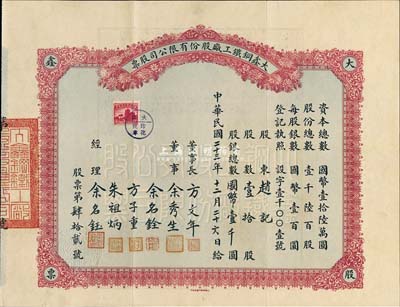 大鑫鋼鐵工廠股份有限公司股票
大
鑫
股
票
資本總數 國幣壹拾陸萬圓
股份總數 壹千陸百股
每股銀數 國幣壹百圓
登記執照 設字壹千〇〇壹號
股東 趙記
股數 壹拾股
股銀總數 國幣壹千圓
中華民國二十三年十二月二十六日給
董事長 方文年
董事 余秀生
余名銓
方子重
朱祖炳
經理 余名鈺
股票第肆拾貳號